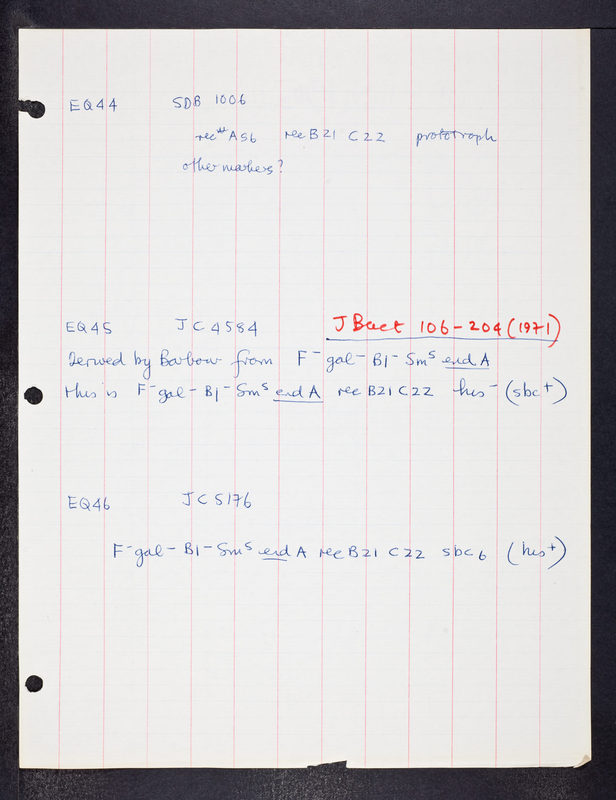 EQ44 SDB 1006
rec A56 rec B21 C22 prototroph
other markers?
EQ45 JC4584 J Bact 106-204 (1971)
Derived by Barbour from F⁻ gal⁻ B1⁻ Smˢ end A
this is F⁻gal⁻ B1⁻ Smˢ end A rec B21 C22 his⁻ (sbc⁺)
EQ46 JC5176
F⁻gal⁻ B1⁻ Smˢ end A rec B21 C22 sbc6 (his⁺)